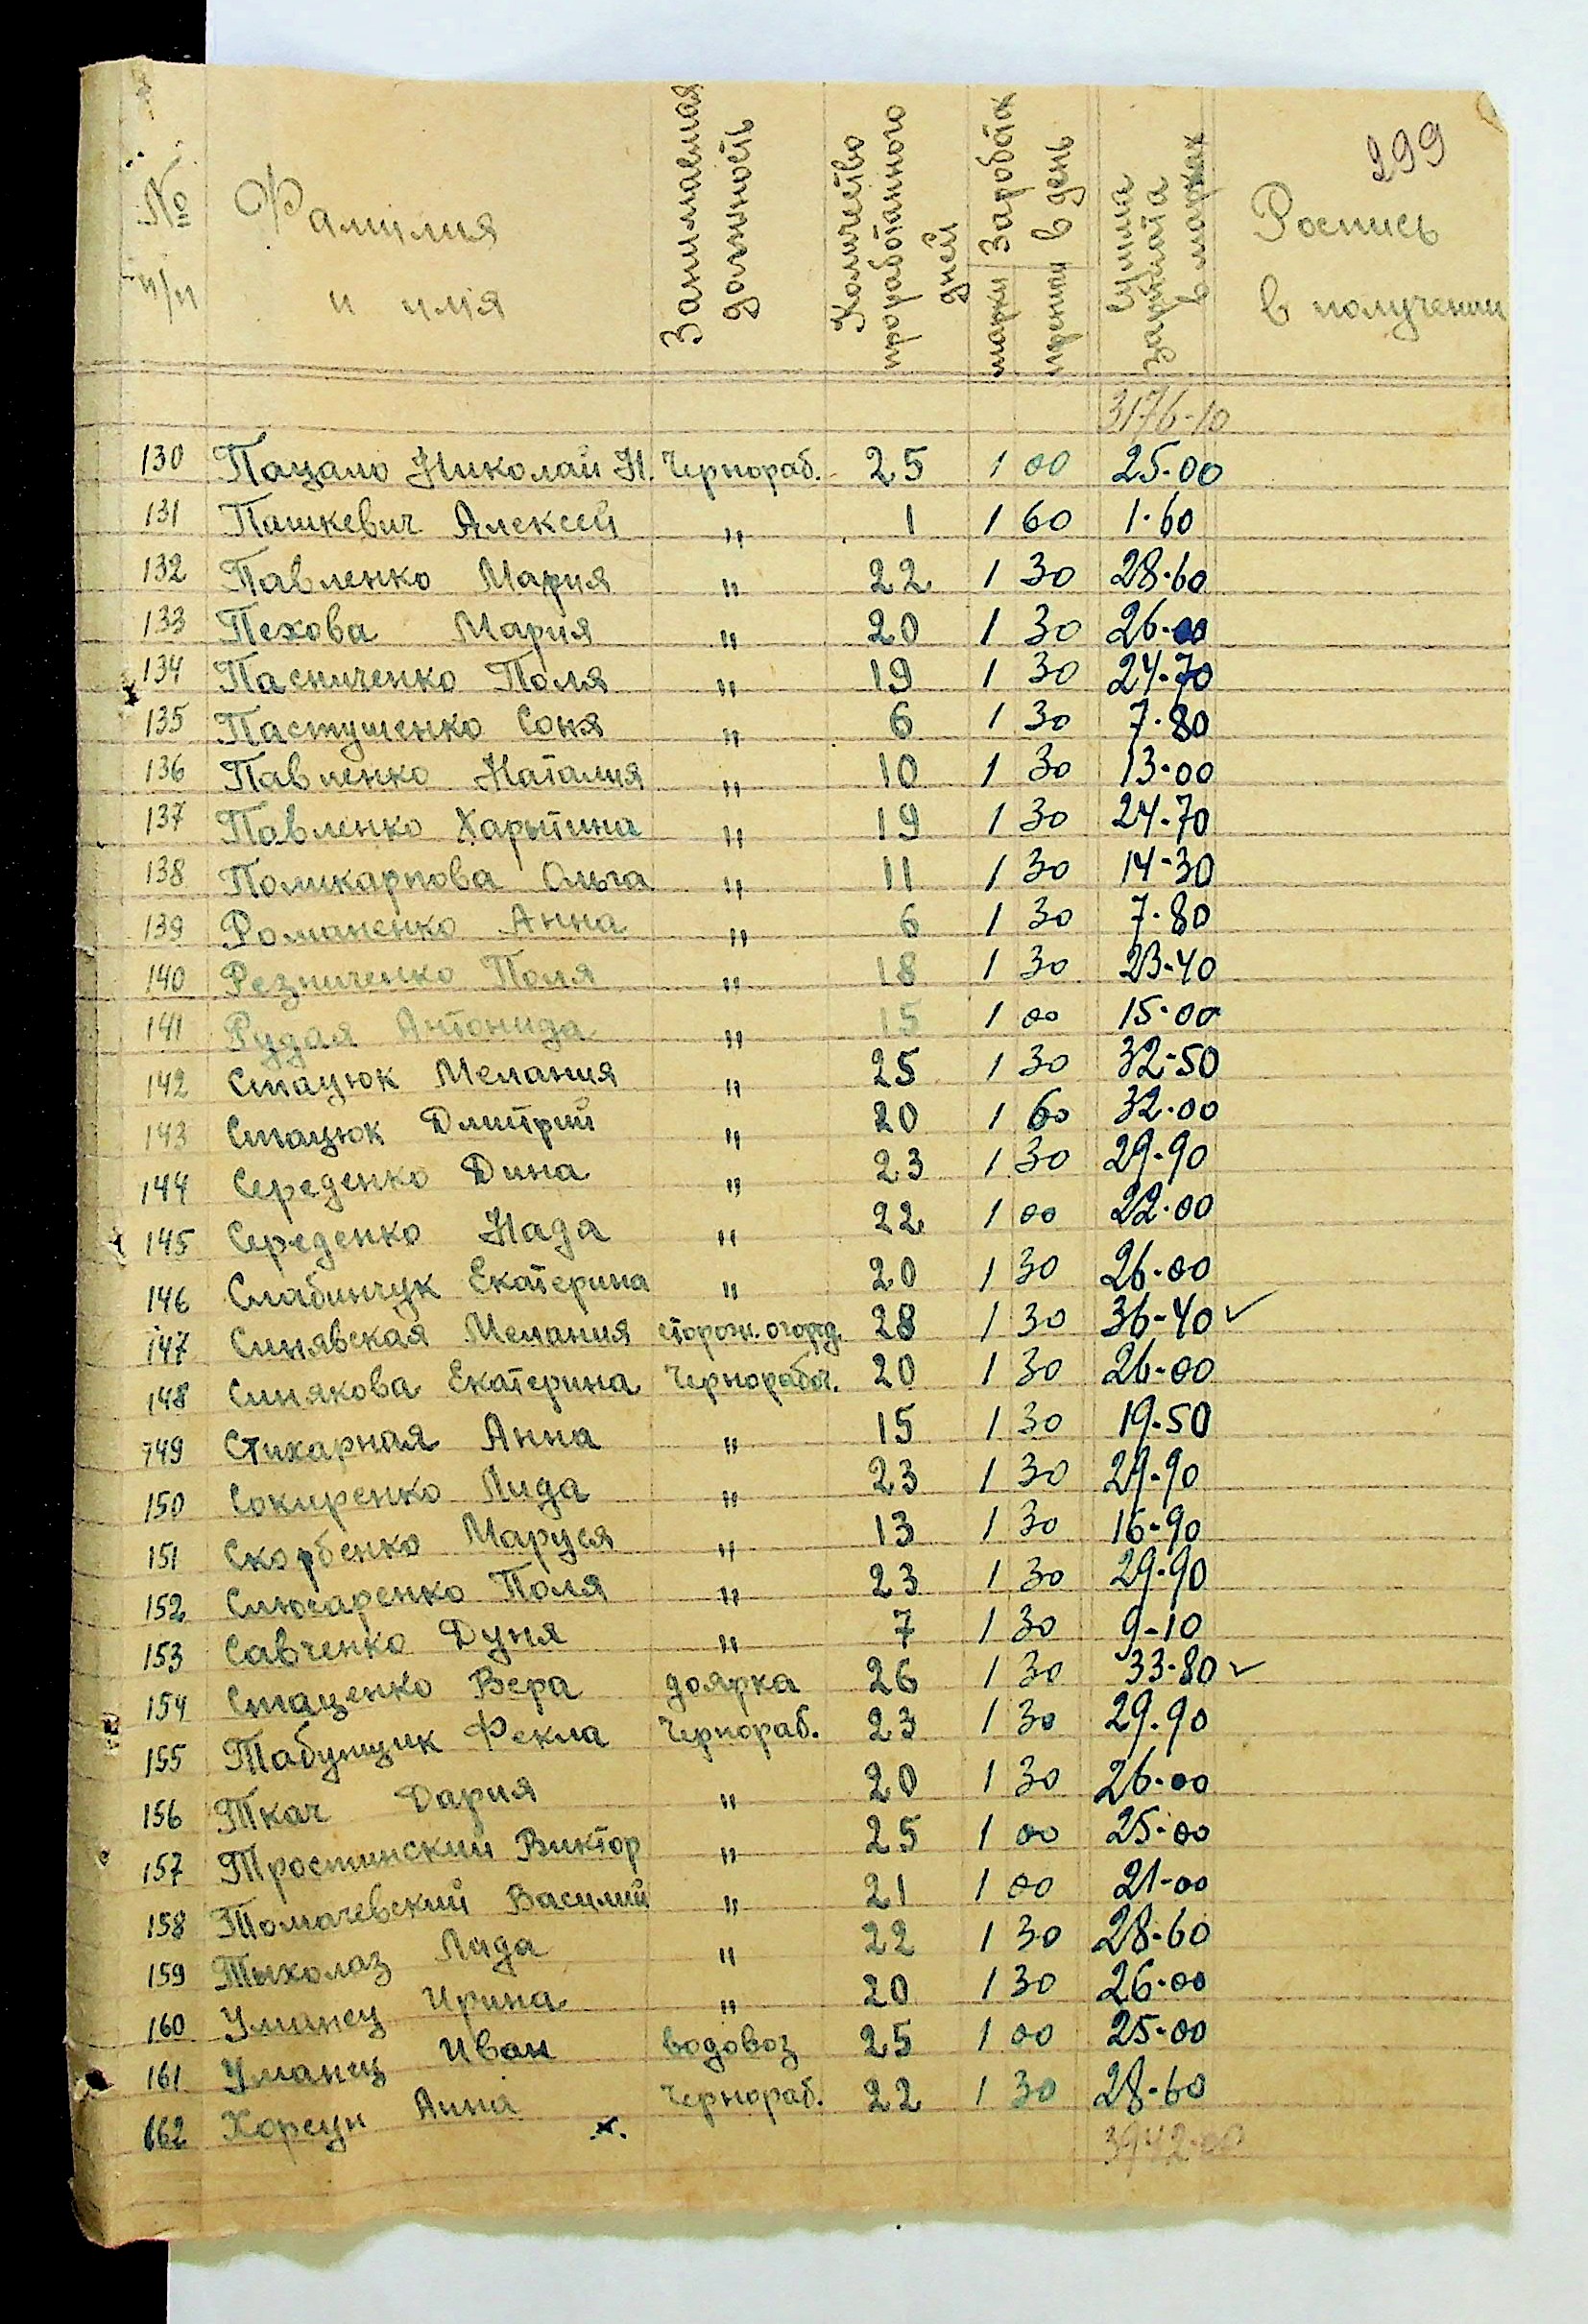 299
№ п/п Фамилия и имя Занимаемая должность Количество проработанного дней Заработок в день марки пфенниги Сумма зарплата в марках Роспись в получении
3176-10
130 Пацало Николай Н. Чернораб. 25 1 00 25-00
131 Пашкевич Алексей " 1 1 60 1-60
132 Павленко Мария " 22 1 30 28-60
133 Пехова Мария " 20 1 30 26-00
134 Пасниченко Поля " 19 1 30 24-70
135 Пастушенко Соня " 6 1 30 7-80
136 Павленко Наталия " 10 1 30 13-00
137 Павленко Харытина " 19 1 30 24-70
138 Поликарпова Ольга " 11 1 30 14-30
139 Романенко Анна " 6 1 30 7-80
140 Резниченко Поля " 18 1 30 23-40
141 Рудая Антонида " 15 1 00 15-00
142 Стацюк Мелания " 25 1 30 32-50
143 Стацюк Дмитрий " 20 1 60 32-00
144 Середенко Дина " 23 1 30 29-90
145 Середенко Надя " 22 1 00 22-00
146 Слабинчук Екатерина " 20 1 30 26-00
147 Синявская Мелания сторож. огород. 28 1 30 36-40 ✓
148 Синякова Екатерина Чернорабоч. 20 1 30 26-00
149 Стихарная Анна " 15 1 30 19-50
150 Сокиренко Лида " 23 1 30 29-90
151 Скорбенко Маруся " 13 1 30 16-90
152 Слюсаренко Поля " 23 1 30 29-90
153 Савченко Дуня " 7 1 30 9-10
154 Стаценко Вера доярка 26 1 30 33-80 ✓
155 Табунщик Фекла Чернораб. 23 1 30 29-90
156 Ткач Дария " 20 1 30 26-00
157 Тростинский Виктор " 25 1 00 25-00
158 Томачевский Василий " 21 1 00 21-00
159 Тыхолаз Лида " 22 1 30 28-60
160 Уманец Ирина " 20 1 30 26-00
161 Уманец Иван водовоз 25 1 00 25-00
162 Хорсун Анна Чернораб. 22 1 30 28-60
3942-00